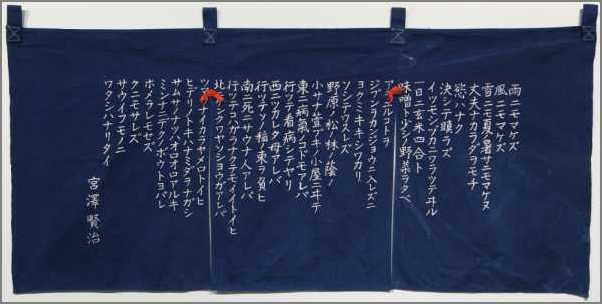 雨ニモマケズ
風ニモマケズ
雪ニモ夏ノ暑サニモマケヌ
丈夫ナカラダヲモチ
慾ハナク
決シテ瞋ラズ
イツモシヅカニワラッテヰル
一日ニ玄米四合ト
味噌ト少シノ野菜ヲタベ
アラユルコトヲ
ジブンヲカンジョウニ入レズニ
ヨクミキキシワカリ
ソシテワスレズ
野原ノ松ノ林ノ蔭ノ
小サナ萱ブキノ小屋ニヰテ
東ニ病氣ノコドモアレバ
行ッテ看病シテヤリ
西ニツカレタ母アレバ
行ッテソノ稲ノ束ヲ負ヒ
南ニ死ニサウナ人アレバ
行ッテコハガラナクテモイイトイヒ
北ニケンクヮヤソショウガアレバ
ツマラナイカラヤメロトイヒ
ヒデリノトキハナミダヲナガシ
サムサノナツハオロオロアルキ
ミンナニデクノボウトヨバレ
ホメラレモセズ
クニモサレズ
サウイフモノニ
ワタシハナリタイ
宮澤賢治